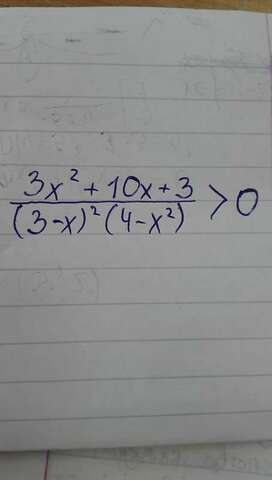 3x² + 10x + 3
(3-x)² (4-x²) > 0